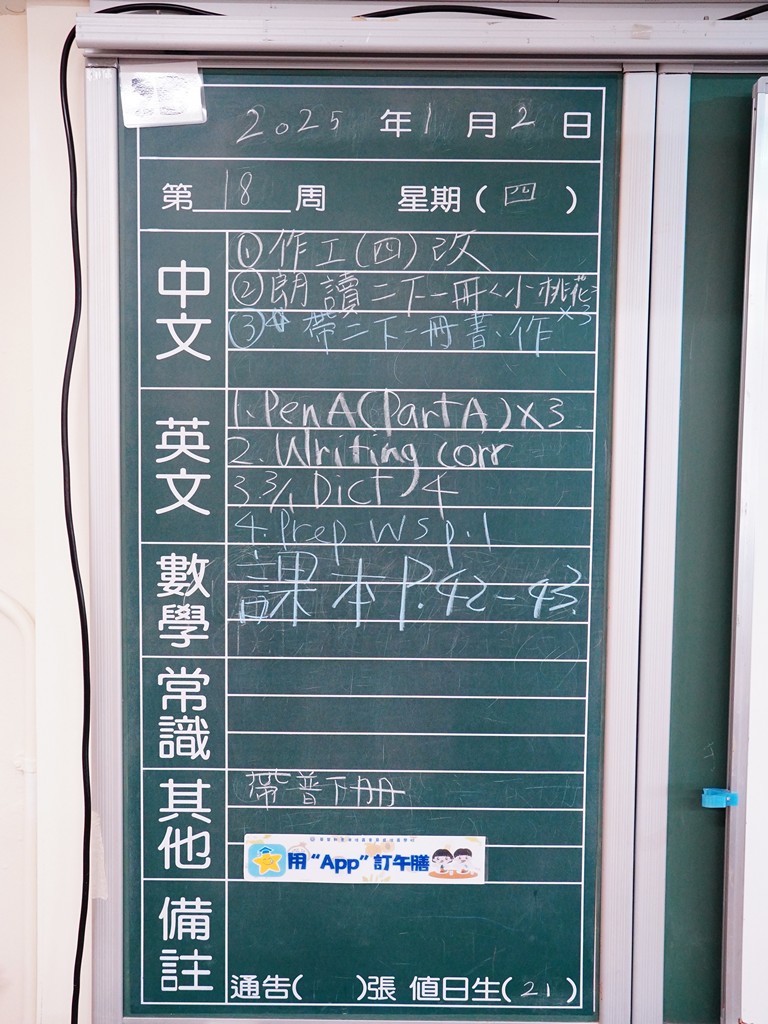 2025年1月2日
第18周 星期(四)
中文
①作工(四)改
②朗讀二下一冊<小桃花>x3
③帶二下一冊書、作
英文
1. Pen A (Part A) x3
2. Writing corr
3. 3/1 Dict 4
4. Prep WS p.1
數學
課本P.42-43
常識
其他
帶普下冊
用“App”訂午膳
備註
通告( )張 值日生(21)